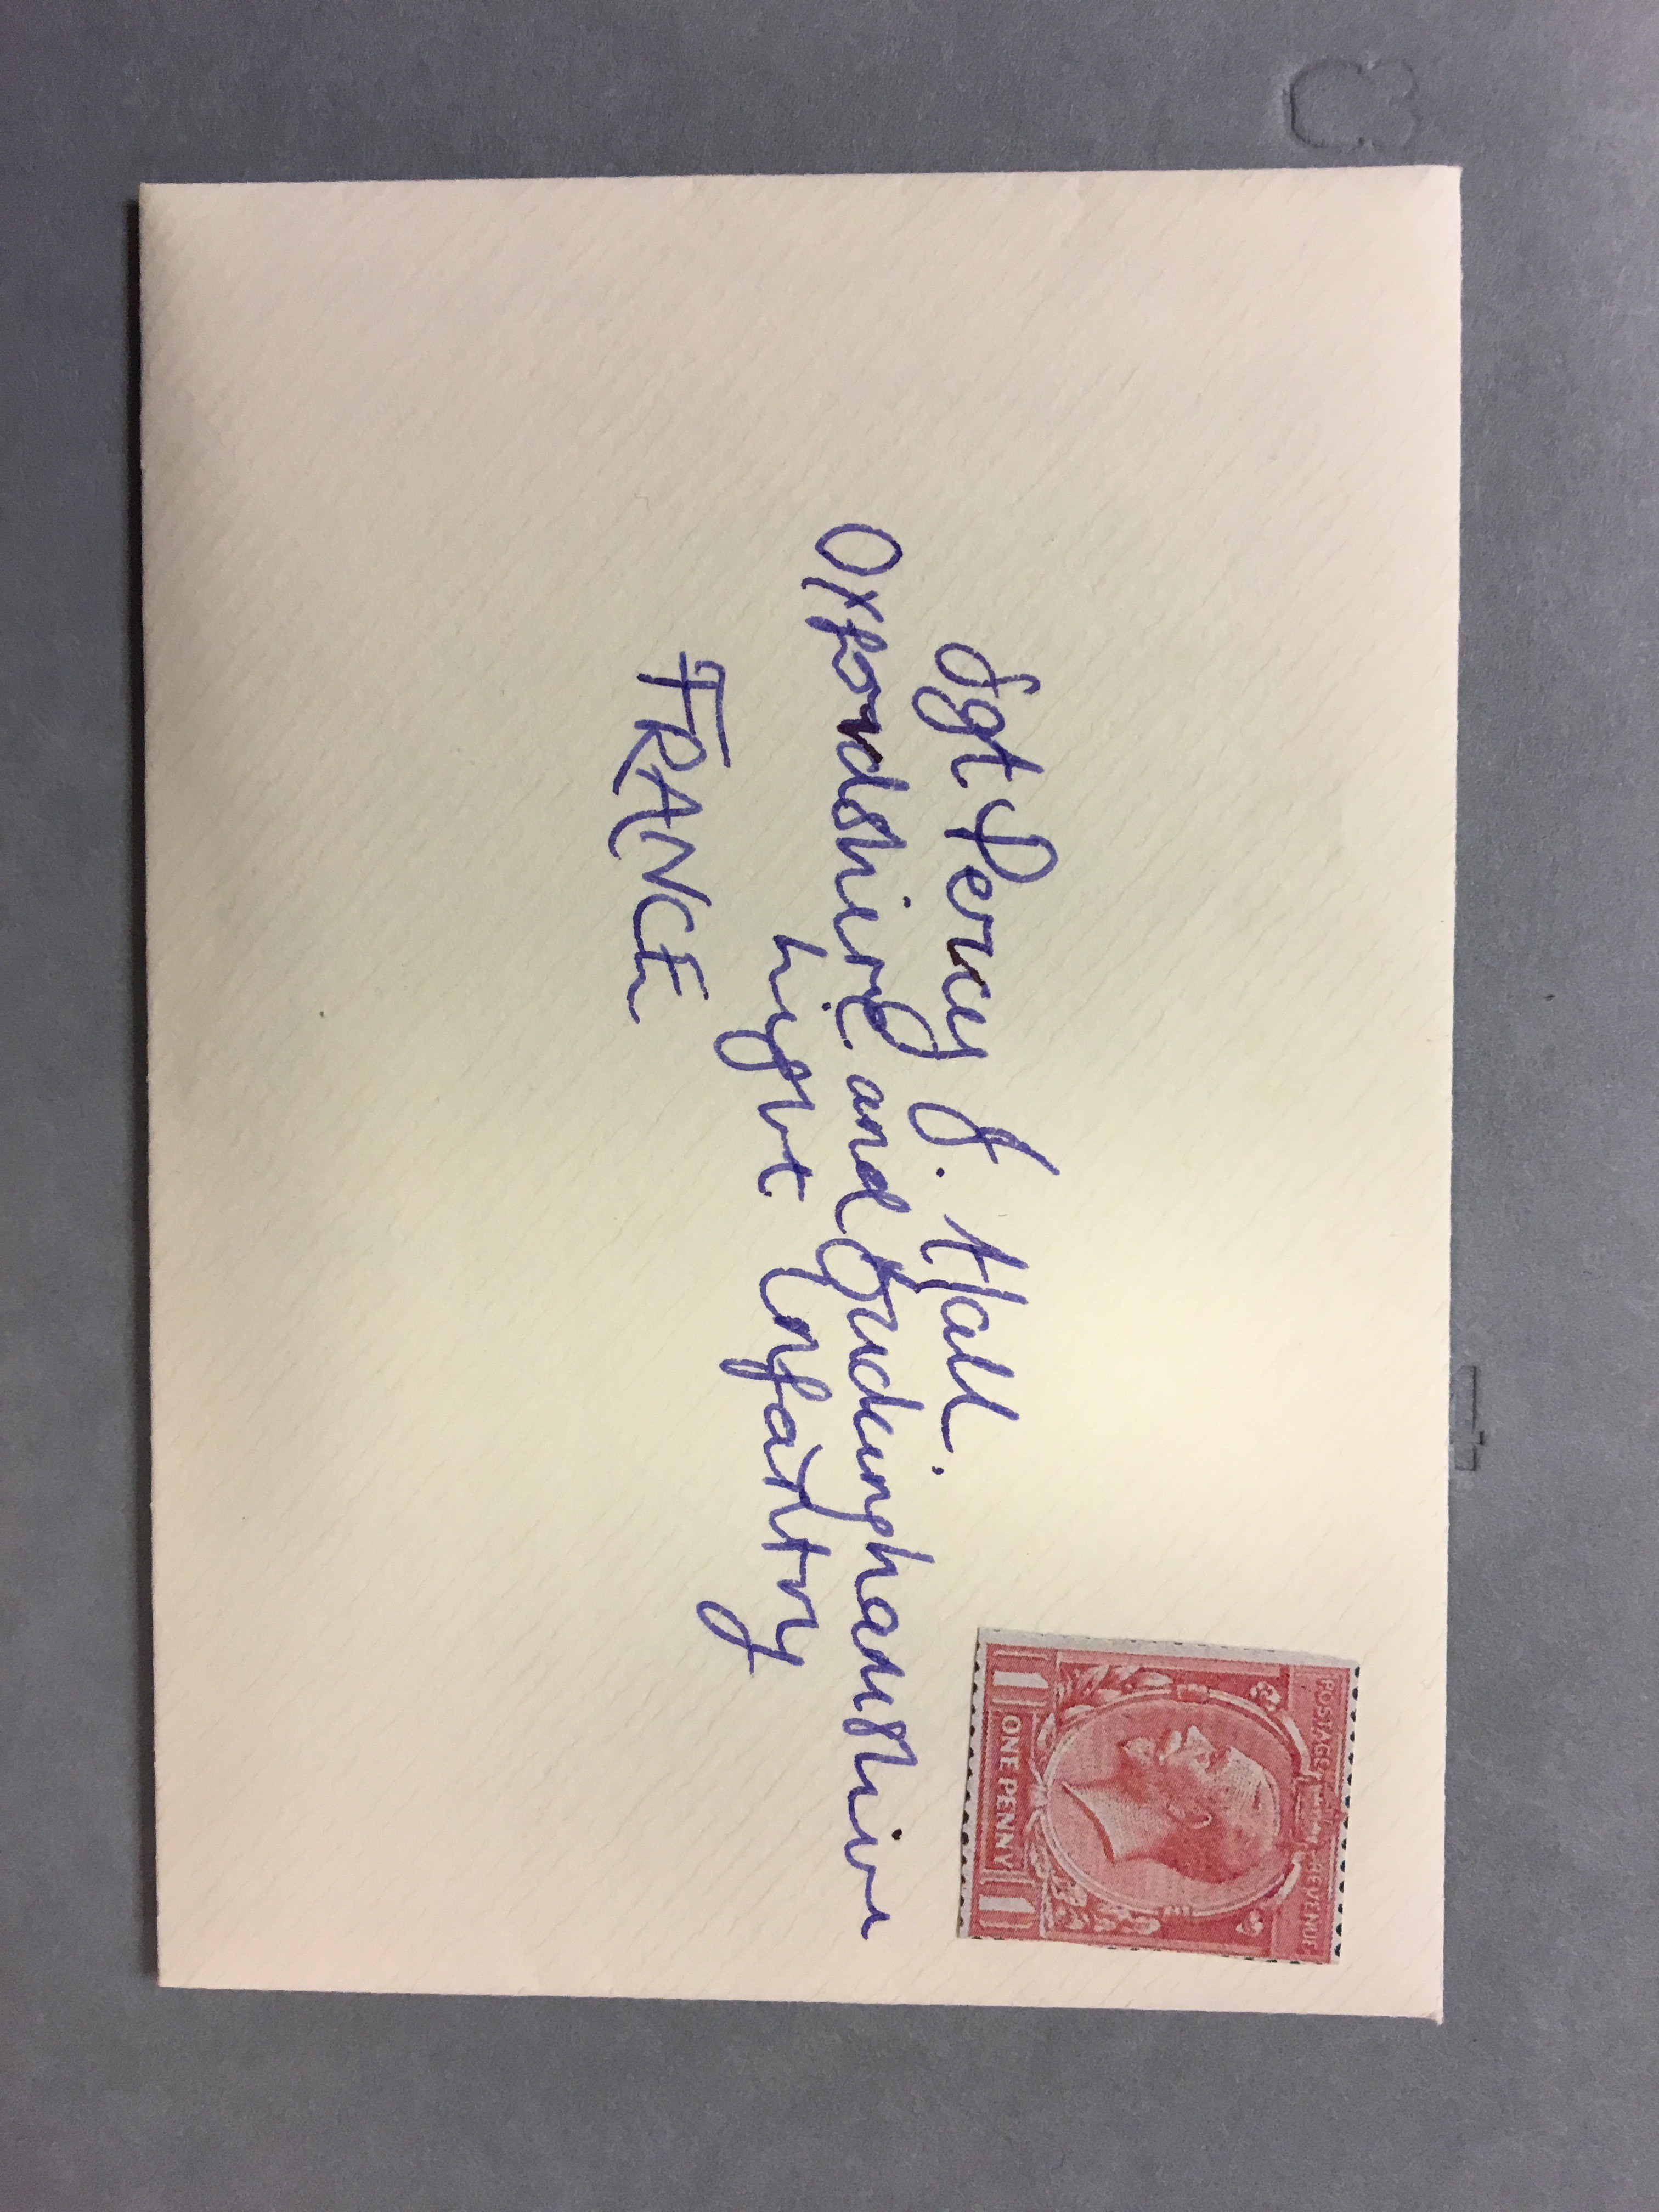 Sgt. Percy J. Hall.
Oxfordshire and Buckinghamshire
Light Infantry
FRANCE
POSTAGE REVENUE
1 ONE PENNY 1